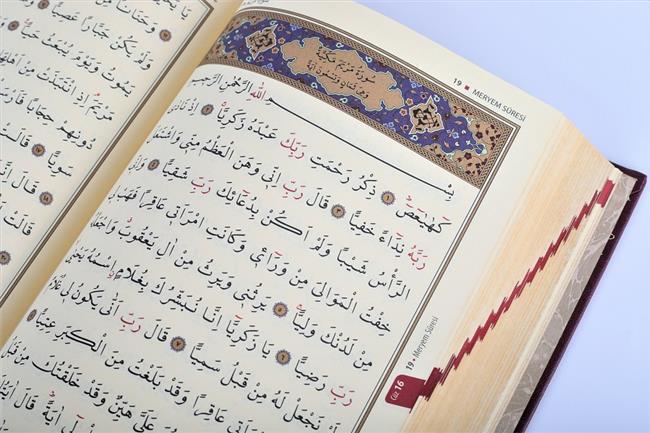 وَحَنَانًا
وَلَمْ يَكُنْ جَبَّارًا عَصِيًّا
يَمُوتُ وَيَوْمَ يُبْعَثُ حَيًّا
مَرْيَمَ اِذِ انْتَبَذَتْ مِنْ اَهْلِهَا
دُونِهِمْ حِجَابًا فَاَرْسَلْنَا
سَوِيًّا ١٧ قَالَتْ
١٨ قَالَ
قَالَتْ
19 • MERYEM SÛRESİ
سُورَةُ مَرْيَمَ مَكِّيَّةٌ
وَهِيَ ثَمَانٍ وَتِسْعُونَ اٰيَةً
بِسْمِ اللّٰهِ الرَّحْمٰنِ الرَّحِيمِ
كٓهٰيٰعٓصٓ ١ ذِكْرُ رَحْمَتِ رَبِّكَ عَبْدَهُ زَكَرِيَّا ٢ اِذْ نَادٰى
رَبَّهُ نِدَٓاءً خَفِيًّا ٣ قَالَ رَبِّ اِنِّي وَهَنَ الْعَظْمُ مِنِّي وَاشْتَعَلَ
الرَّأْسُ شَيْبًا وَلَمْ اَكُنْ بِدُعَٓائِكَ رَبِّ شَقِيًّا ٤ وَاِنِّي
خِفْتُ الْمَوَالِيَ مِنْ وَرَٓائِي وَكَانَتِ امْرَاَتِي عَاقِرًا فَهَبْ لِي
مِنْ لَدُنْكَ وَلِيًّا ٥ يَرِثُنِي وَيَرِثُ مِنْ اٰلِ يَعْقُوبَ وَاجْعَلْهُ
رَبِّ رَضِيًّا ٦ يَا زَكَرِيَّا اِنَّا نُبَشِّرُكَ بِغُلَامٍ اسْمُهُ يَحْيٰى
لَمْ نَجْعَلْ لَهُ مِنْ قَبْلُ سَمِيًّا ٧ قَالَ رَبِّ اَنّٰى يَكُونُ لِي غُلَامٌ
امْرَاَتِي عَاقِرًا وَقَدْ بَلَغْتُ مِنَ الْكِبَرِ عِتِيًّا
عَلَيَّ هَيِّنٌ وَقَدْ خَلَقْتُكَ مِنْ قَبْلُ
اٰيَةً قَالَ اٰيَتُكَ
Cüz 16
19 • Meryem Sûresi